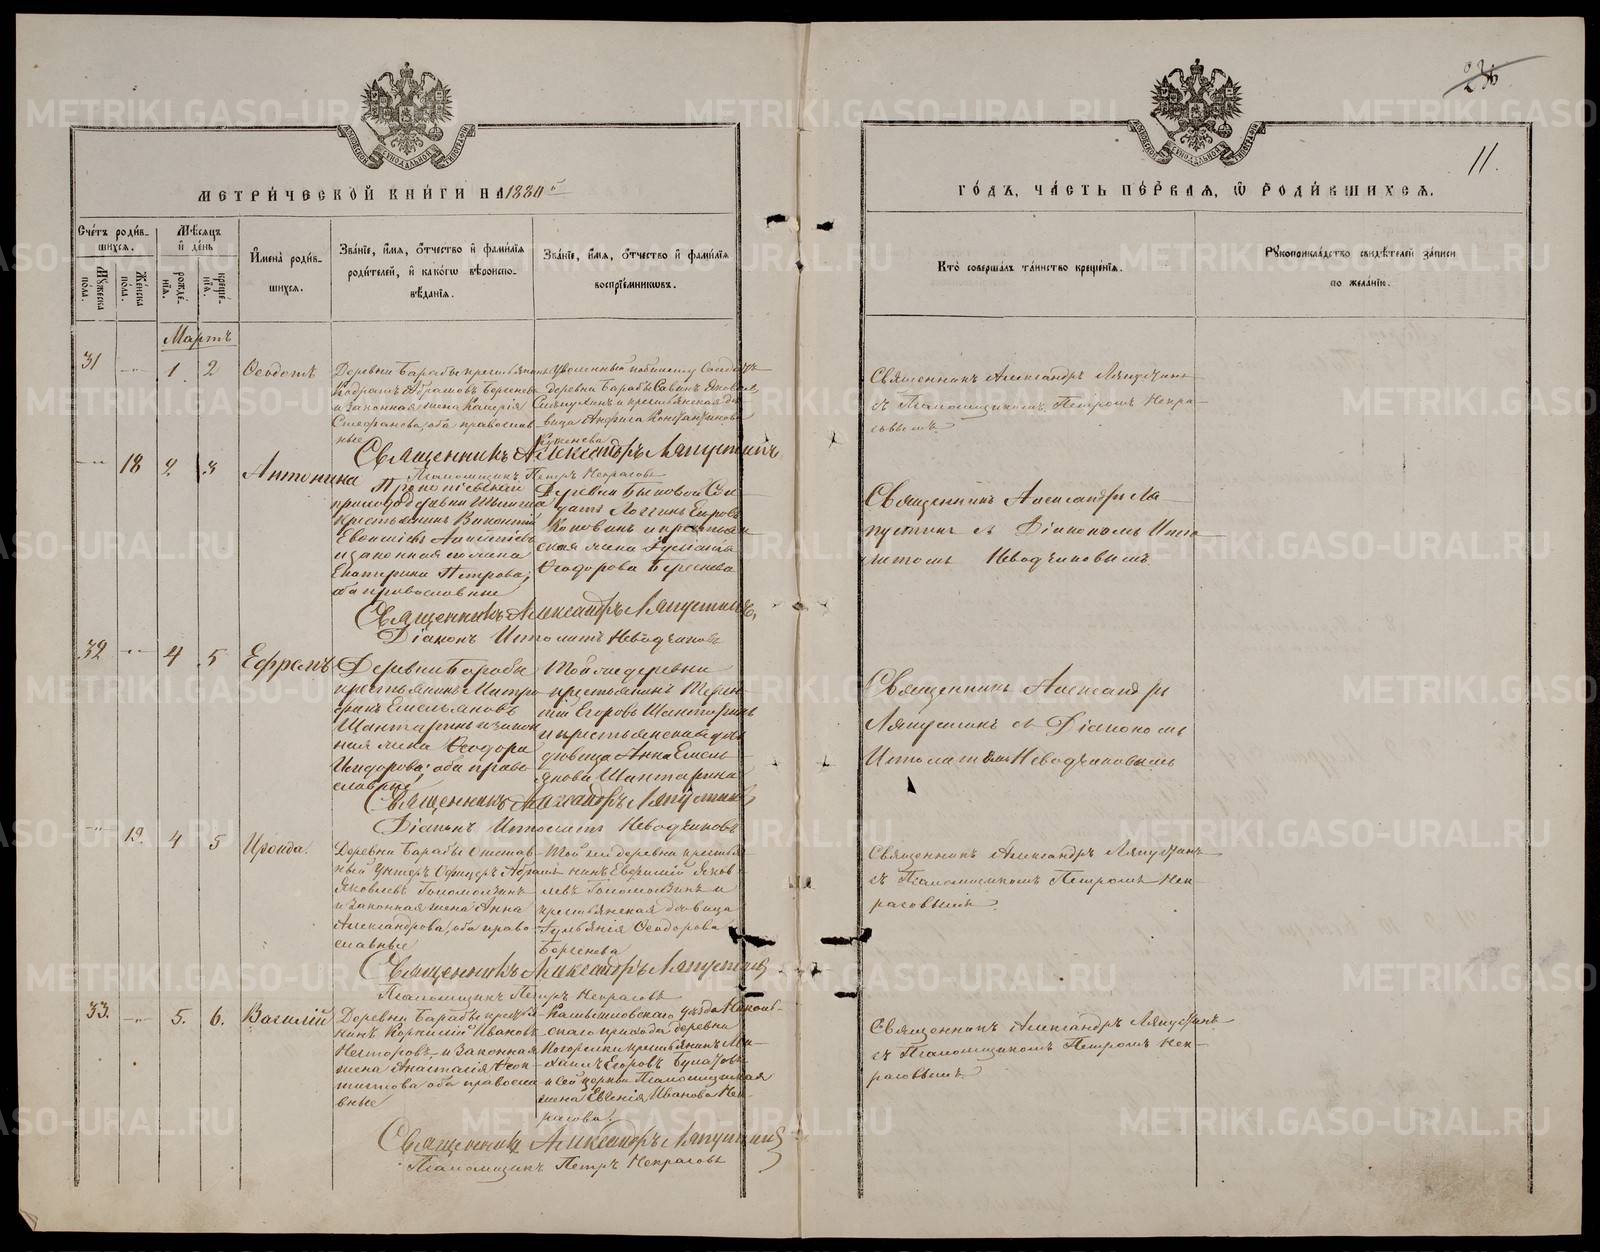 236
11.
МЕТРИ́ЧЕСКОЙ КНИ́ГИ НА 1880й
ГО́ДЪ, ЧА́СТЬ ПЕ́РВАЯ, Ѿ РОДИ́ВШИХСЯ.
Сче́тъ роди́вшихся.
Му́жеска по́ла.
Же́нска по́ла.
Мѣ́сяцъ и҆ де́нь
рожде́нїя.
креще́нїя.
И҆мена̀ роди́вшихся.
Зва́нїе, и҆́мя, ѻ҆́тчество и҆ фами́лїя
роди́телей, и҆ како́гѡ вѣроиспо-
вѣ́данїя.
Зва́нїе, и҆́мя, ѻ҆́тчество и҆ фами́лїя
воспрїе́мникѡвъ.
Кто̀ соверша́лъ та́инство креще́нїя.
Рꙋкоприкла́дство свидѣ́телей за́писи
по жела́нїю.
Мартъ
31
1
2
Ѳеодотъ
Деревни Барабы крестьянинъ
Кодратъ Абрамовъ Берсенева
и законная жена Калерія
Стефанова, оба православ-
ные
деревни Барабы Савинъ Яковлевъ
и крестьянская дѣ-
вица
Священникъ Александръ Ляпустинъ
съ Псаломщикомъ Петромъ Некра-
совымъ
Священникъ Александръ Ляпустинъ
Псаломщикъ Петръ Некрасовъ
18
2.
3
Антонина
крестьянинъ Викентій
и законная его жена
Екатерина Петрова;
оба православные
Деревни Быковой Сол-
датъ Логгинъ Егоровъ
и крестьян-
ская жена
Ѳеодорова Берсенева
Священникъ Александръ Ля
пустинъ съ Діакономъ Иппо
литомъ Неводчиковымъ
Священникъ Александръ Ляпустинъ,
Діаконъ Ипполитъ Неводчиковъ
32
4
5
Ефремъ
Деревни Барабы
крестьянинъ Митро
фанъ Емельяновъ
Шантаринъ и закон
ная жена Ѳеодора
Исидорова; оба право
славные
Той же деревни
крестьянинъ Терен-
тій Егоровъ Шантаринъ
и крестьянская дѣ-
вица Анна Емель-
янова Шантарина
Священникъ Александръ
Ляпустинъ съ Діакономъ
Ипполитомъ Неводчиковымъ
Священникъ Александръ Ляпустинъ
Діаконъ Ипполитъ Неводчиковъ
19.
4
5
Ираида.
Деревни Барабы Отстав-
ный Унтеръ Офицеръ Абрамъ
Яковлевъ Голомолзинъ
и законная жена Анна
Александрова, оба право-
славные
Той же деревни крестья-
нинъ Евфимій Яков
левъ Голомолзинъ и
крестьянская дѣвица
Ѳеодорова
Берсенева
Священникъ Александръ Ляпустинъ
съ Псаломщикомъ Петромъ Нек-
расовымъ
Священникъ Александръ Ляпустинъ
Псаломщикъ Петръ Некрасовъ
33.
5.
6.
Василій
Деревни Барабы крестья-
нинъ Корнилій Ивановъ
Несторовъ и законная
жена Анастасія Ѳеок-
тистова оба правосла
вные
Камышловскаго уѣзда Никольс-
скаго прихода деревни
Погорелки крестьянинъ Ми-
хаилъ Егоровъ Булатовъ
и сей церкви Псаломщицкая
жена Евгенія Иванова Нек-
расова.
Священникъ Александръ Ляпустинъ
съ Псаломщикомъ Петромъ Нек-
расовымъ.
Священникъ Александръ Ляпустинъ
Псаломщикъ Петръ Некрасовъ
METRIKI.GASO-URAL.RU